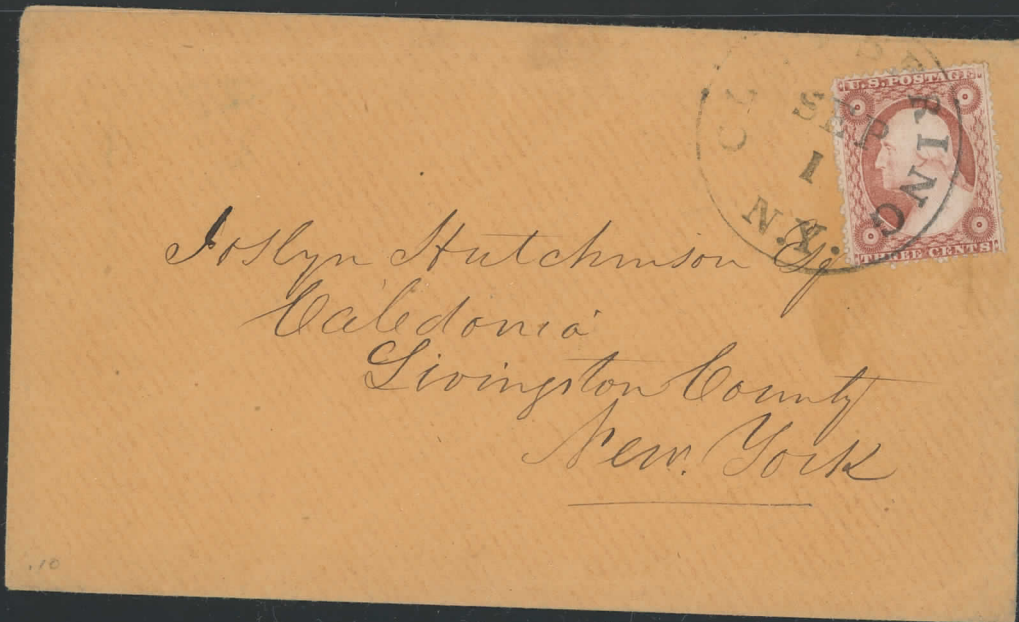 U.S. POSTAGE
THREE CENTS
SEP
1
N.Y.
Joslyn Hutchinson Esq
Caledonia
Livingston County
New. York
.10